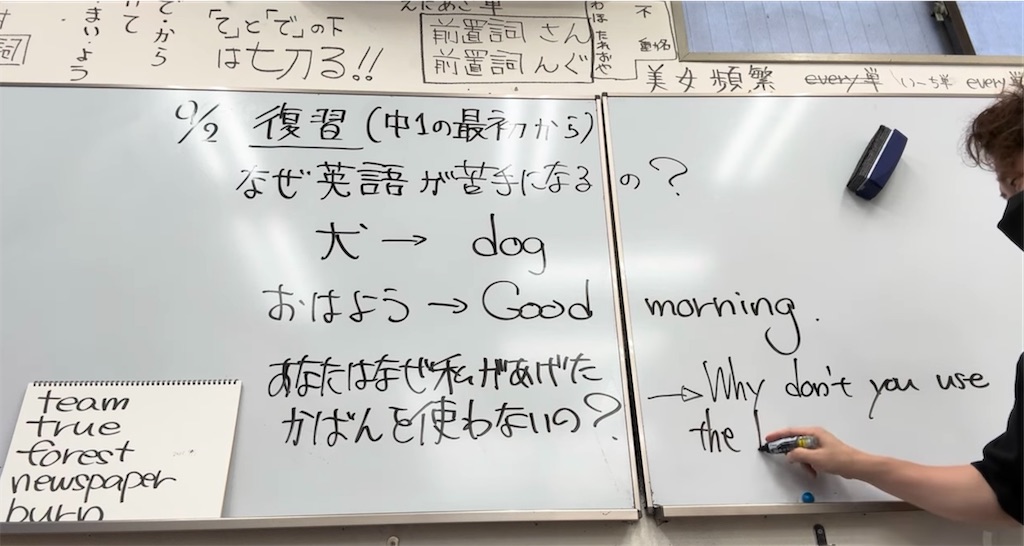 で・から
まい・よう
「て」と「で」の下
は七刀る!!
前置詞 さん
前置詞 んぐ
不
美女 頻繁 every単 いーち単 every単
9/2 復習 (中1の最初から)
なぜ英語が苦手になるの?
犬→ dog
おはよう→Good morning.
あなたはなぜ私があげた
かばんを使わないの?
→Why don't you use
the
team
true
forest
newspaper
burn